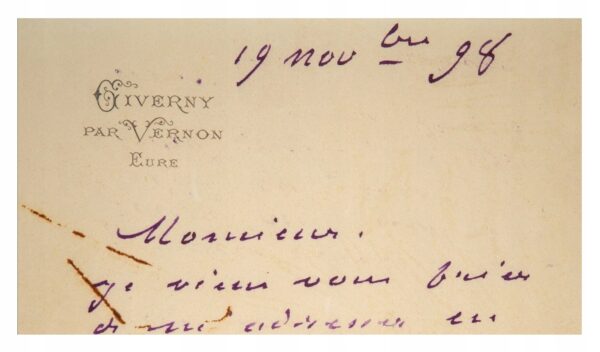 19 novbre 98
GIVERNY
PAR VERNON
EURE
Monsieur.
je viens vous prier
de m'adresser en